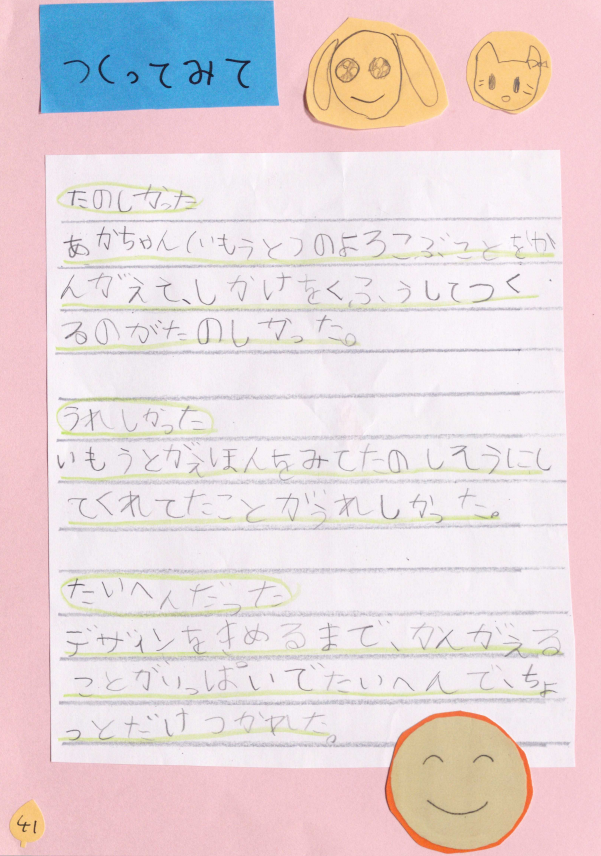 つくってみて
たのしかった
あかちゃん(いもうと)のよろこぶことをか
んがえて、しかけをくふうしてつく
るのがたのしかった。
うれしかった
いもうとがえほんをみてたのしそうにし
てくれてたことがうれしかった。
たいへんだった
デザインをきめるまで、かんがえる
ことがいっぱいでたいへんで、ちょ
っとだけつかれた。
41